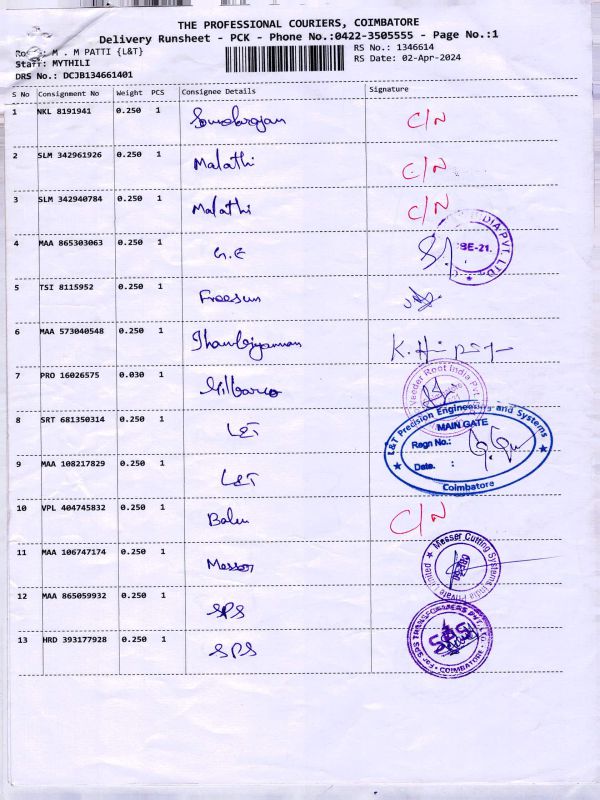 THE PROFESSIONAL COURIERS, COIMBATORE
Delivery Runsheet - PCK - Phone No.:0422-3505555 - Page No.:1
M . M PATTI {L&T}
RS No.: 1346614
Staff: MYTHILI
RS Date: 02-Apr-2024
DRS No.: DCJB134661401
S No Consignment No Weight PCS Consignee Details Signature
1 NKL 8191941 0.250 1 C/N
2 SLM 342961926 0.250 1 Malathi C/N
3 SLM 342940784 0.250 1 Malathi C/N
4 MAA 865303063 0.250 1 G.E
INDIA PVT. LTD
BE-21.
5 TSI 8115952 0.250 1 Freesun
6 MAA 573040548 0.250 1
7 PRO 16026575 0.030 1 Gilbarco
Veeder Root India Pvt.
8 SRT 681350314 0.250 1 L&T
L&T Precision Engineering and Systems
MAIN GATE
Regn No.:
Date. :
Coimbatore
9 MAA 108217829 0.250 1 L&T
10 VPL 404745832 0.250 1 Balu C/N
11 MAA 106747174 0.250 1 Messer
Messer Cutting Systems India Private Limited
12 MAA 865059932 0.250 1 SPS
13 HRD 393177928 0.250 1 SPS
SPS
COIMBATORE